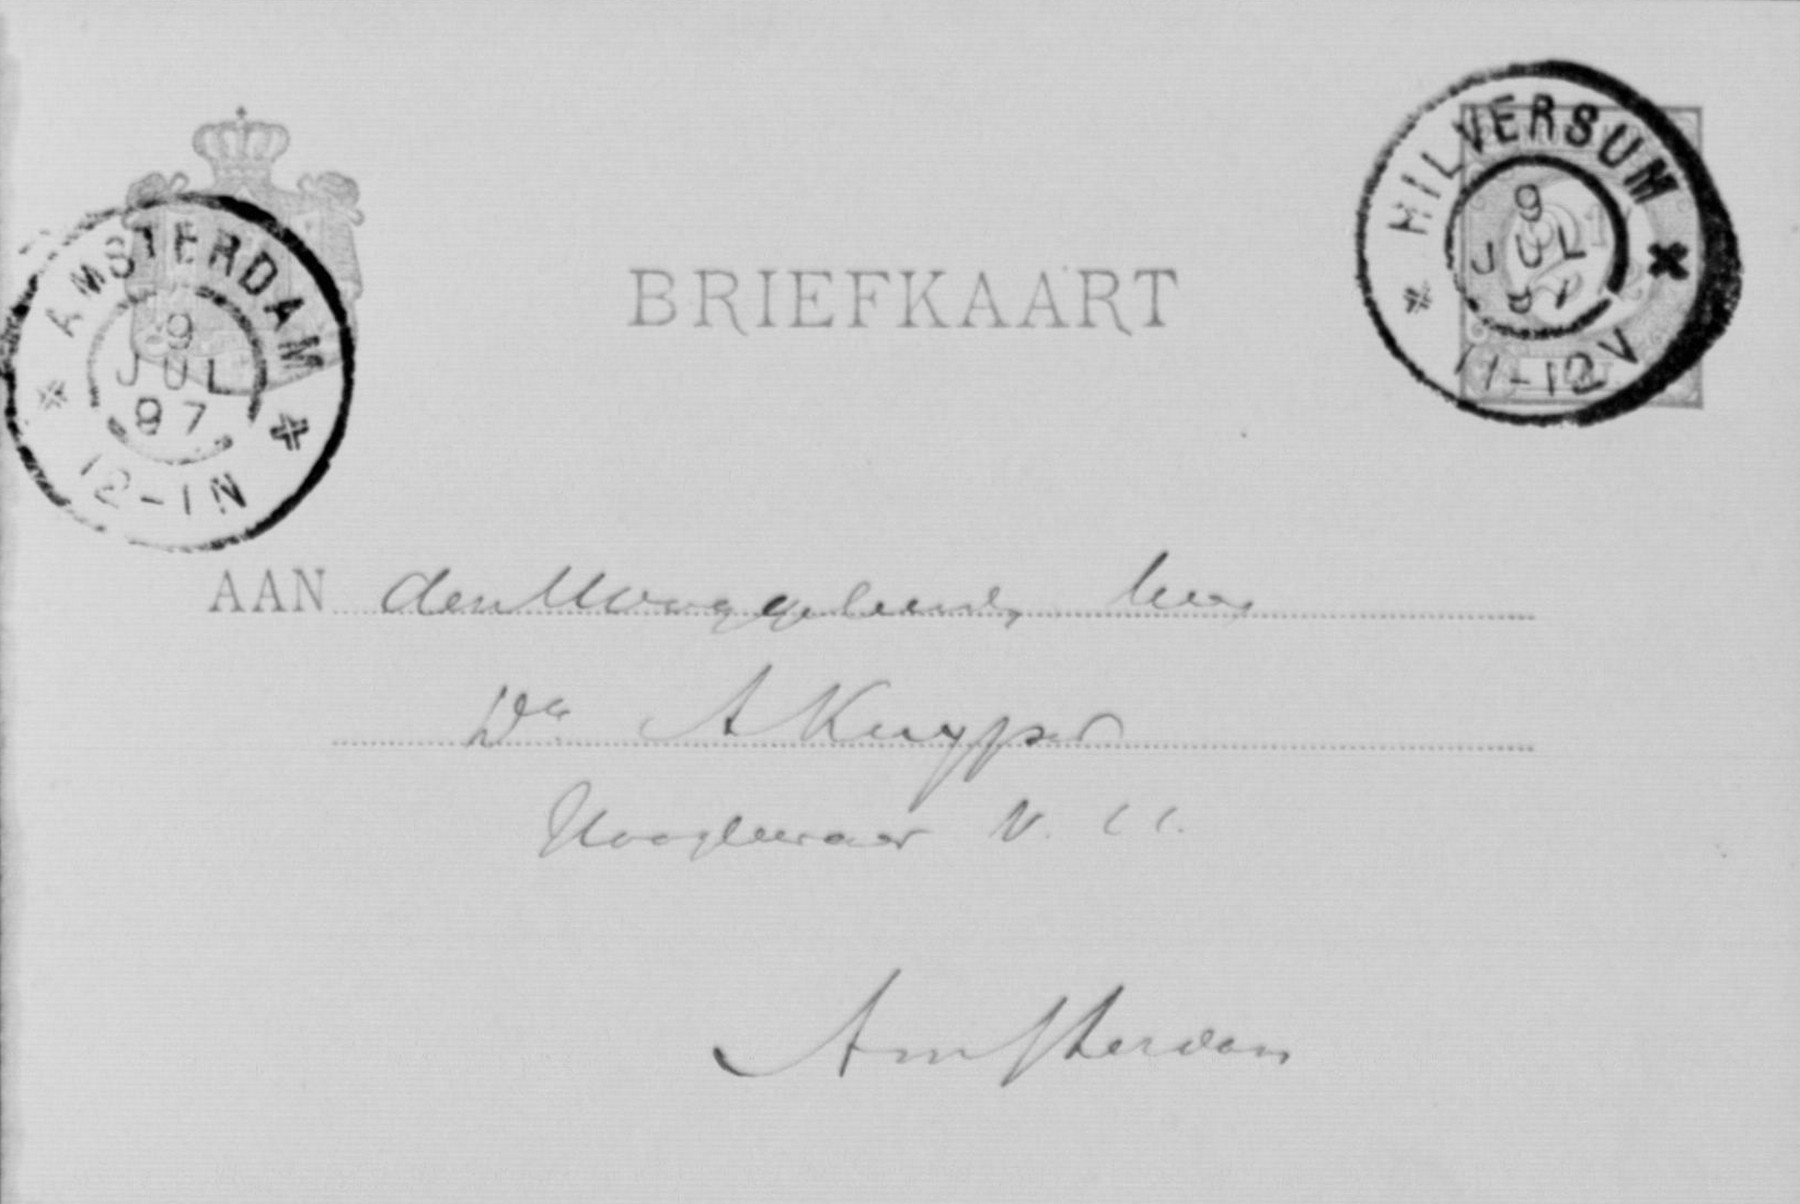 HILVERSUM
9
JUL
97
11-12V
AMSTERDAM
9
JUL
97
12-1N
BRIEFKAART
AAN den Hooggeleerde heer
Dr A Kuyper
Hoogleeraar V. U.
Amsterdam